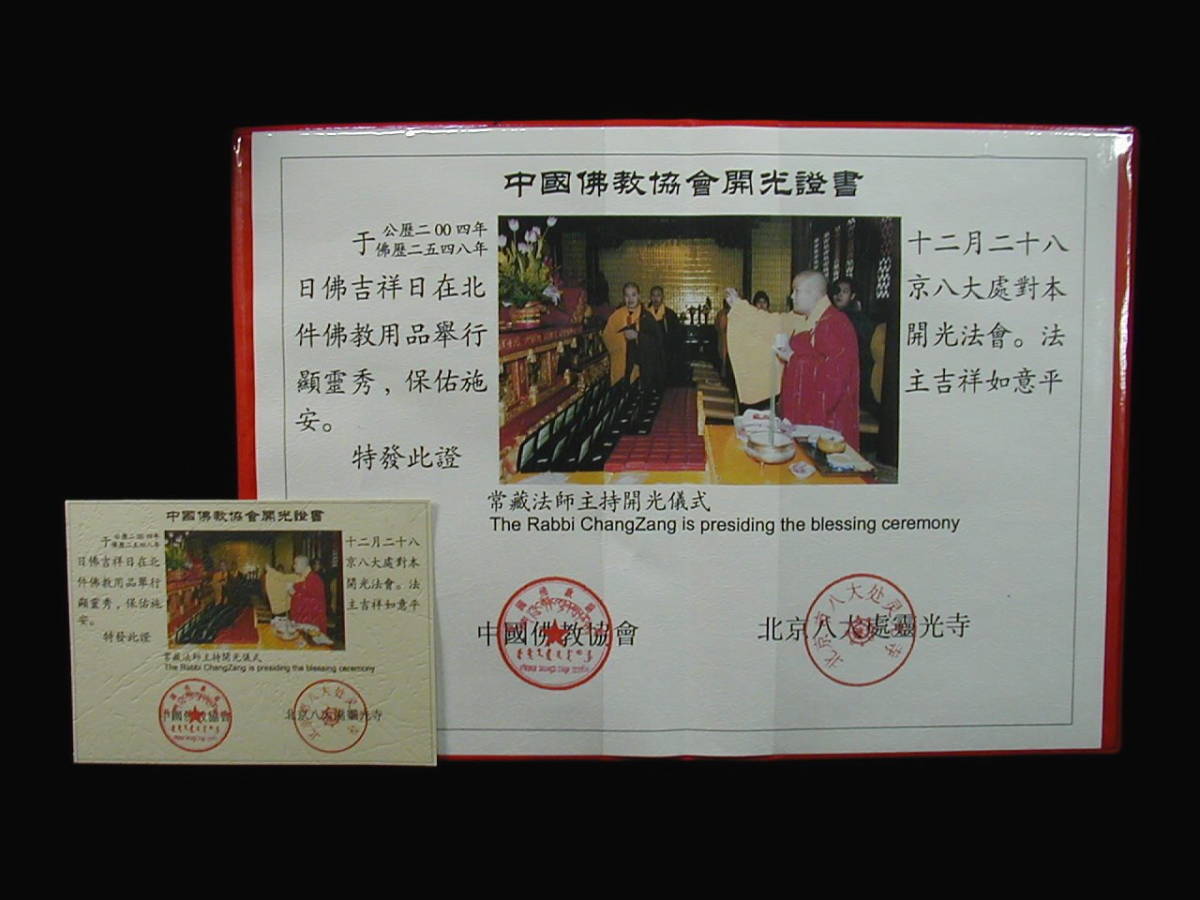 中國佛教協會開光證書
于 公歷二00四年 十二月二十八
佛歷二五四八年
日佛吉祥日在北 京八大處對本
件佛教用品舉行 開光法會。法
顯靈秀，保佑施 主吉祥如意平
安。
特發此證
常藏法師主持開光儀式
The Rabbi ChangZang is presiding the blessing ceremony
中國佛教協會 北京八大處靈光寺
中國佛教協會開光證書
于 公歷二00四年 十二月二十八
佛歷二五四八年
日佛吉祥日在北 京八大處對本
件佛教用品舉行 開光法會。法
顯靈秀，保佑施 主吉祥如意平
安。
特發此證
常藏法師主持開光儀式
The Rabbi ChangZang is presiding the blessing ceremony
中國佛教協會 北京八大處靈光寺